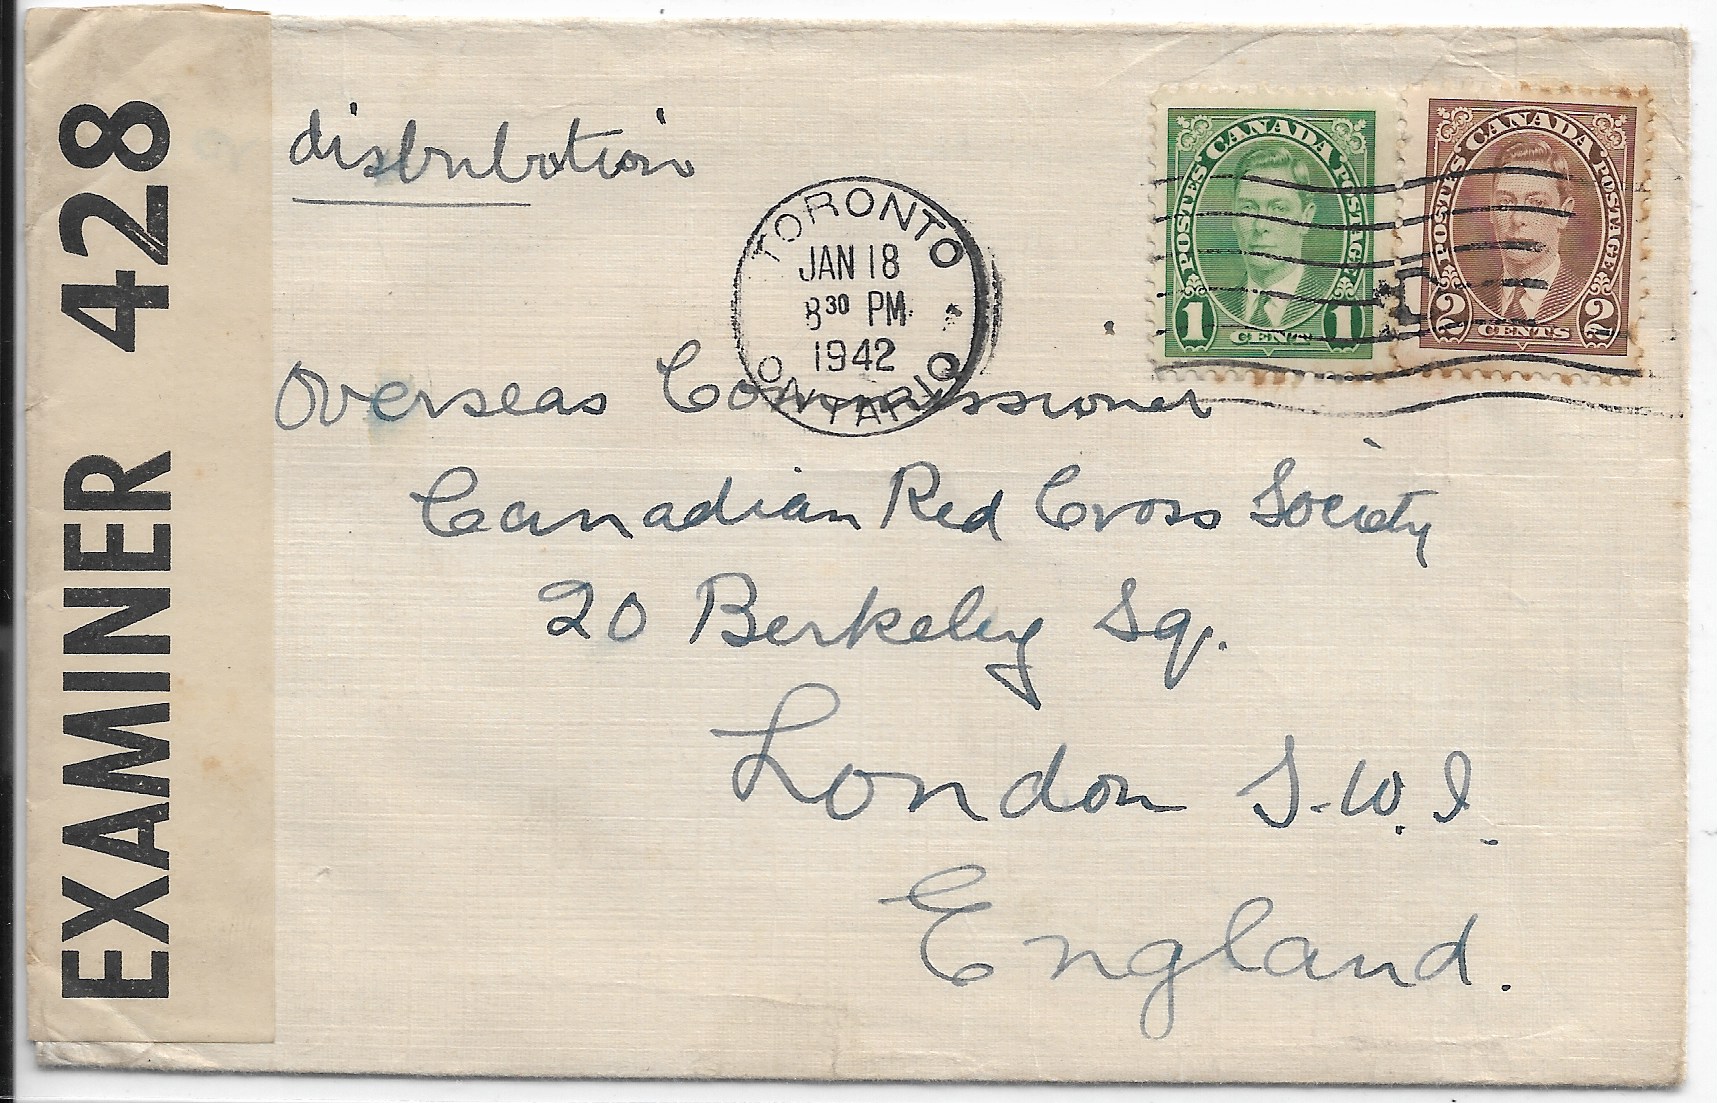 EXAMINER 428
distribution
TORONTO
JAN 18
8 30 PM
1942
ONTARIO
CANADA
POSTES POSTAGE
1 CENT 1
CANADA
POSTES POSTAGE
2 CENTS 2
Overseas Commissioner
Canadian Red Cross Society
20 Berkeley Sq.
London S.W.1.
England.